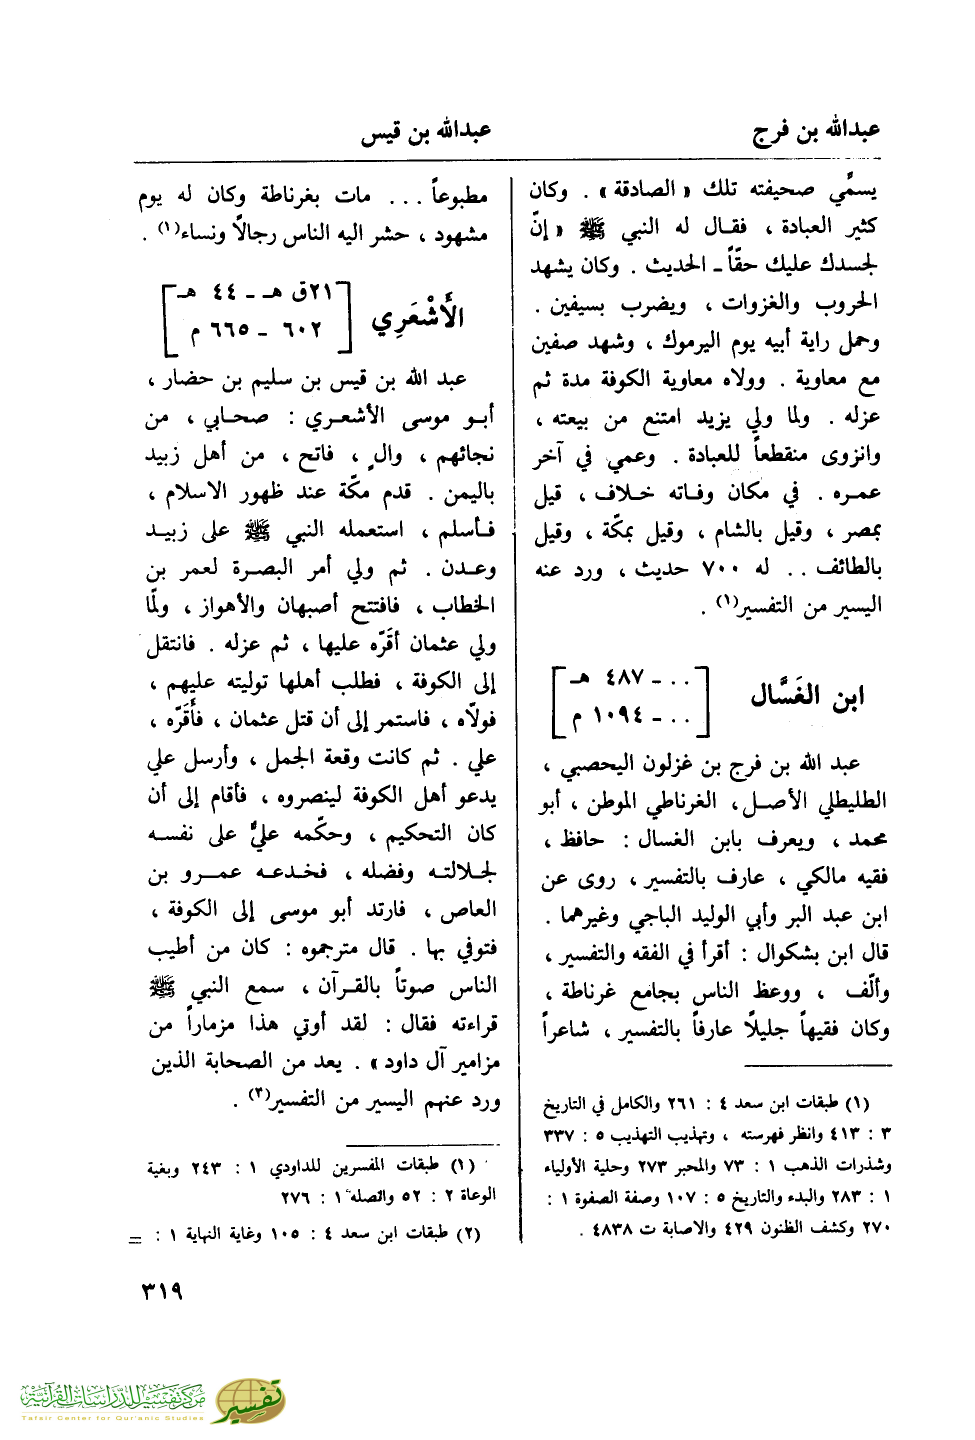 عبدالله بن فرج
عبدالله بن قيس
يسمّي صحيفته تلك « الصادقة » . وكان
كثير العبادة ، فقال له النبي ﷺ « إنّ
لجسدك عليك حقّاً ـ الحديث . وكان يشهد
الحروب والغزوات ، ويضرب بسيفين .
وحمل راية أبيه يوم اليرموك ، وشهد صفين
مع معاوية . وولاه معاوية الكوفة مدة ثم
عزله . ولما ولي يزيد امتنع من بيعته ،
وانزوى منقطعاً للعبادة . وعمي في آخر
عمره . في مكان وفاته خلاف ، قيل
بمصر ، وقيل بالشام ، وقيل بمكّة ، وقيل
بالطائف . . له ٧٠٠ حديث ، ورد عنه
اليسير من التفسير(١) .
ابن الغَسَّال
[ . . ـ ٤٨٧ هـ
. . ـ ١٠٩٤ م ]
عبد الله بن فرج بن غزلون اليحصبي ،
الطليطلي الأصل، الغرناطي الموطن ، أبو
محمد ، ويعرف بابن الغسال : حافظ ،
فقيه مالكي ، عارف بالتفسير ، روى عن
ابن عبد البر وأبي الوليد الباجي وغيرهما .
قال ابن بشكوال : أقرأ في الفقه والتفسير ،
وألّف ، ووعظ الناس بجامع غرناطة ،
وكان فقيهاً جليلًا عارفاً بالتفسير ، شاعراً
(١) طبقات ابن سعد ٤ : ٢٦١ والكامل في التاريخ
٣ : ٤١٣ وانظر فهرسته ، وتهذيب التهذيب ٥ : ٣٣٧
وشذرات الذهب ١ : ٧٣ والمحبر ٢٧٣ وحلية الأولياء
١ : ٢٨٣ والبدء والتاريخ ٥ : ١٠٧ وصفة الصفوة ١ :
٢٧٠ وكشف الظنون ٤٢٩ والاصابة ت ٤٨٣٨ .
مطبوعاً . . . مات بغرناطة وكان له يوم
مشهود ، حشر اليه الناس رجالًا ونساء(١) .
الأَشْعَرِي
[ ٢١ق هـ ـ ٤٤ هـ
٦٠٢ ـ ٦٦٥ م ]
عبد الله بن قيس بن سليم بن حضار ،
أبو موسى الأشعري : صحابي ، من
نجائهم ، والٍ ، فاتح ، من أهل زبيد
باليمن . قدم مكّة عند ظهور الاسلام ،
فأسلم ، استعمله النبي ﷺ على زبيد
وعدن . ثم ولي أمر البصرة لعمر بن
الخطاب ، فافتتح أصبهان والأهواز ، ولمّا
ولي عثمان أقَرّه عليها ، ثم عزله . فانتقل
إلى الكوفة ، فطلب أهلها توليته عليهم ،
فولّاه ، فاستمر إلى أن قتل عثمان ، فأقَرّه ،
علي . ثم كانت وقعة الجمل ، وأرسل علي
يدعو أهل الكوفة لينصروه ، فأقام إلى أن
كان التحكيم ، وحكّمه عليٌّ على نفسه
لجلالته وفضله ، فخدعه عمرو بن
العاص ، فارتد أبو موسى إلى الكوفة ،
فتوفي بها . قال مترجموه : كان من أطيب
الناس صوتاً بالقرآن ، سمع النبي ﷺ
قراءته فقال : لقد أوتي هذا مزماراً من
مزامير آل داود » . يعد من الصحابة الذين
ورد عنهم اليسير من التفسير(٢) .
(١) طبقات المفسرين للداودي ١ : ٢٤٣ وبغية
الوعاة ٢ : ٥٢ والصله ١ : ٢٧٦
(٢) طبقات ابن سعد ٤ : ١٠٥ وغاية النهاية ١ : =
٣١٩
مركز تفسير للدراسات القرآنية
Tafsir Center for Qur'anic Studies
تفسير